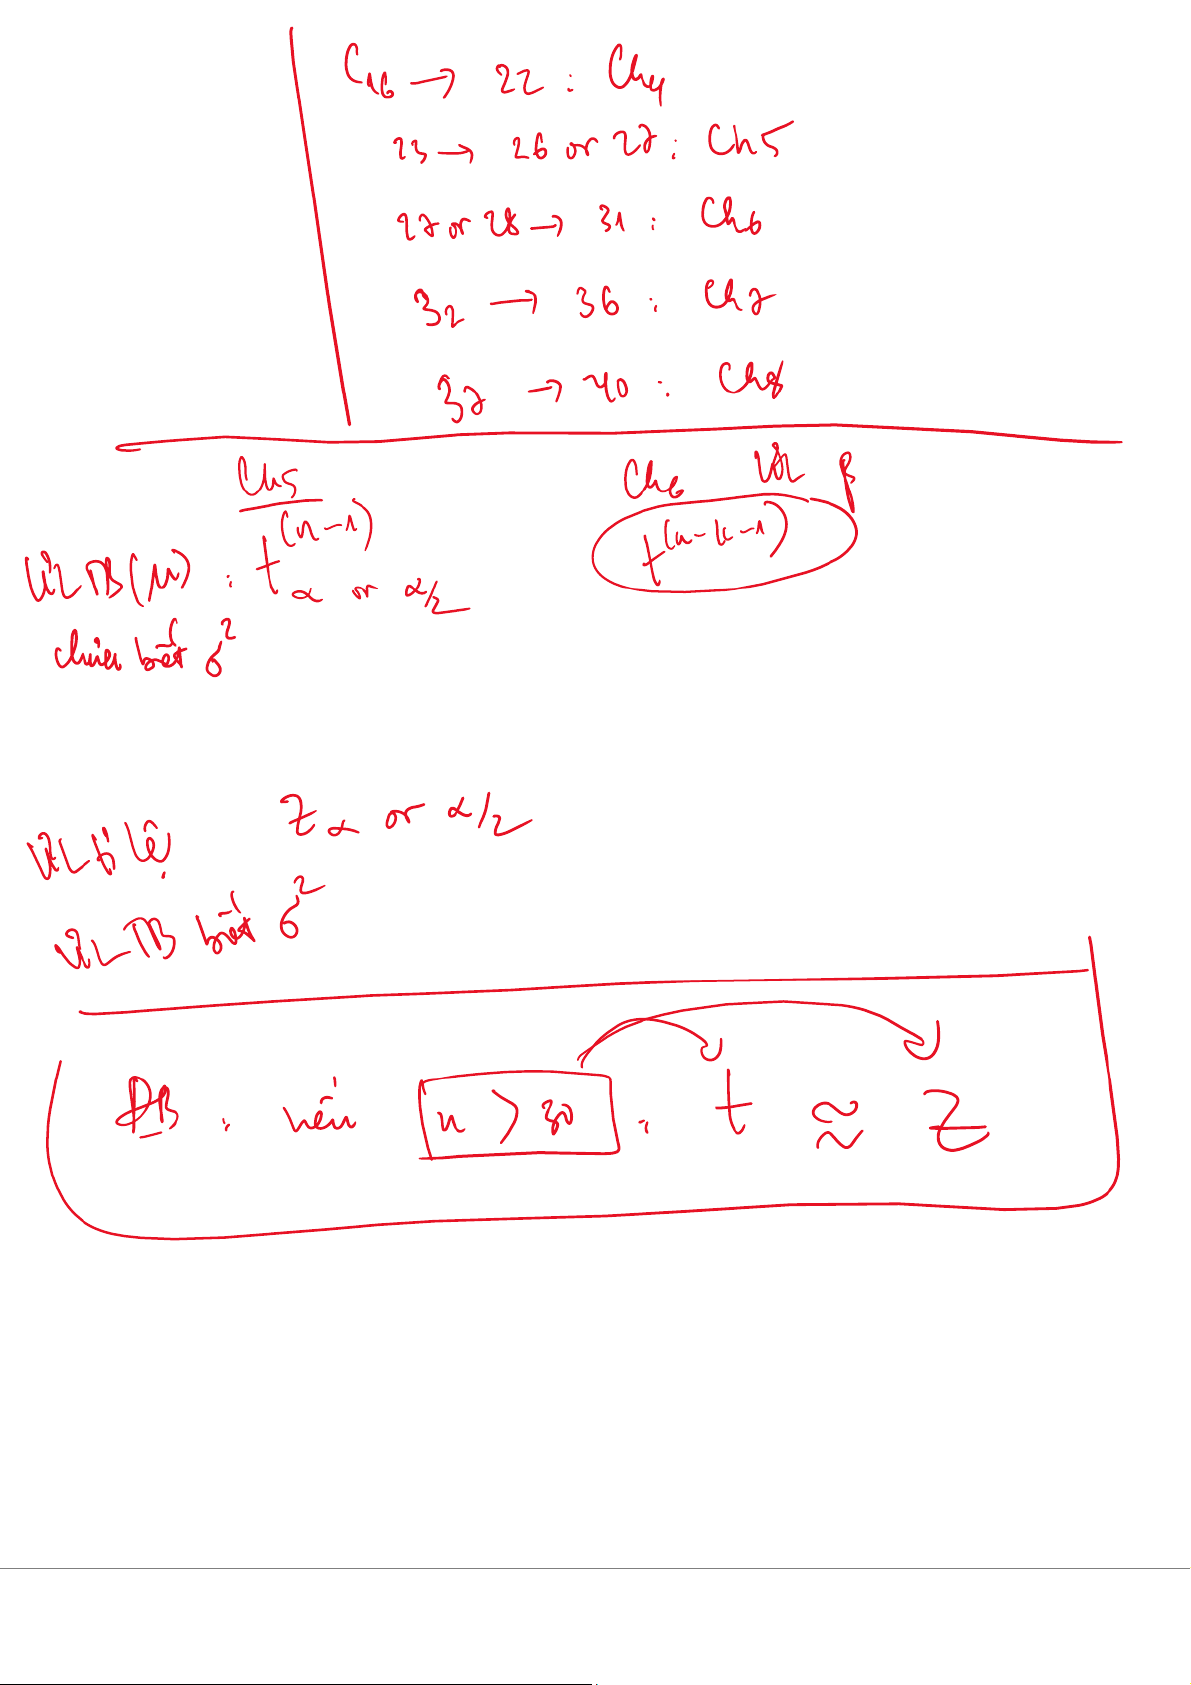 C16 → 22 : Ch4
23 → 26 or 27 : Ch5
27 or 28 → 31 : Ch6
32 → 36 : Ch7
37 → 40 : Ch8
Ch5
ƯL TB(μ) : t^(n-1) α or α/2
chưa biết σ²
Ch6 ƯL β
t^(n-k-1)
ƯL tỉ lệ Zα or α/2
ƯL TB biết σ²
ĐB : nếu n > 30 : t ≈ Z